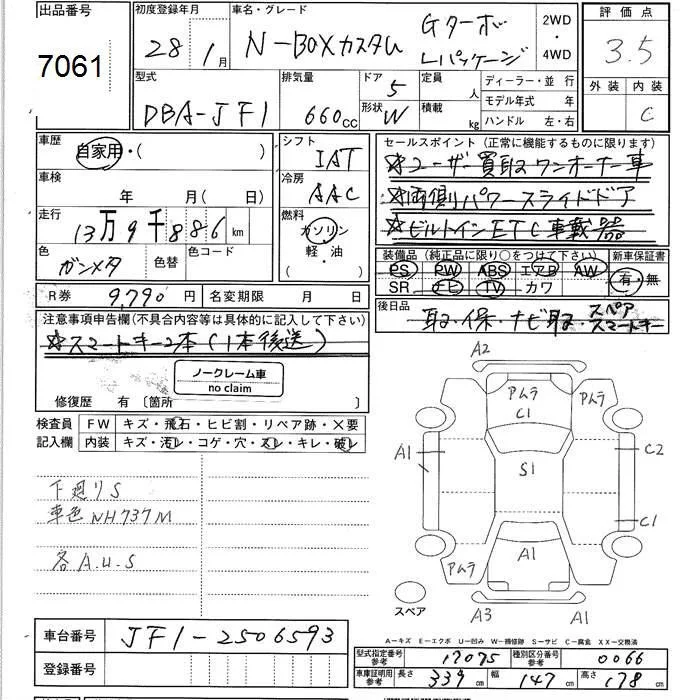 出品番号 7061
初度登録年月 28年 1月
車名・グレード N-BOXカスタム Gターボ Lパッケージ
2WD・4WD
評価点 3.5
外装 内装 C
型式 DBA-JF1
排気量 660cc
ドア 5 形状 W
定員 人 積載 kg
ディーラー・並行
モデル年式 年
ハンドル 左・右
車歴 自家用・( )
車検 年 月( )
走行 13万9千886km
色 ガンメタ 色替 色コード
シフト IAT
冷房 AAC
燃料 ガソリン・軽・油
セールスポイント(正常に機能するものに限ります)
☆ユーザー買取ワンオーナー車
☆両側パワースライドドア
☆ビルトインETC車載器
装備品(純正品に限り○をつけて下さい) 新車保証書
PS PW ABS エアB AW
SR TV カワ
有・無
R券 9,790円 名変期限 月 日
後日品 取・保・ナビ取・スペアスマートキー
注意事項申告欄(不具合内容等は具体的に記入して下さい)
☆スマートキー2本(1本後送)
ノークレーム車
no claim
修復歴 有〔箇所
検査員記入欄
FW キズ・飛石・ヒビ割・リペア跡・×要
内装 キズ・汚レ・コゲ・穴・スレ・キレ・破レ
下廻りS
車色NH737M
各A.U.S
A2
アムラ
C1
アムラ
A1
S1
C2
C1
A1
アムラ
スペア
A3
A1
A-キズ E-エクボ U-凹み W-補修跡 S-サビ C-腐食 XX-交換済
車台番号 JF1-2506593
登録番号
型式指定番号参考 17075 種別区分番号参考 0066
車庫証明用参考 長さ 339cm 幅 147cm 高さ 178cm